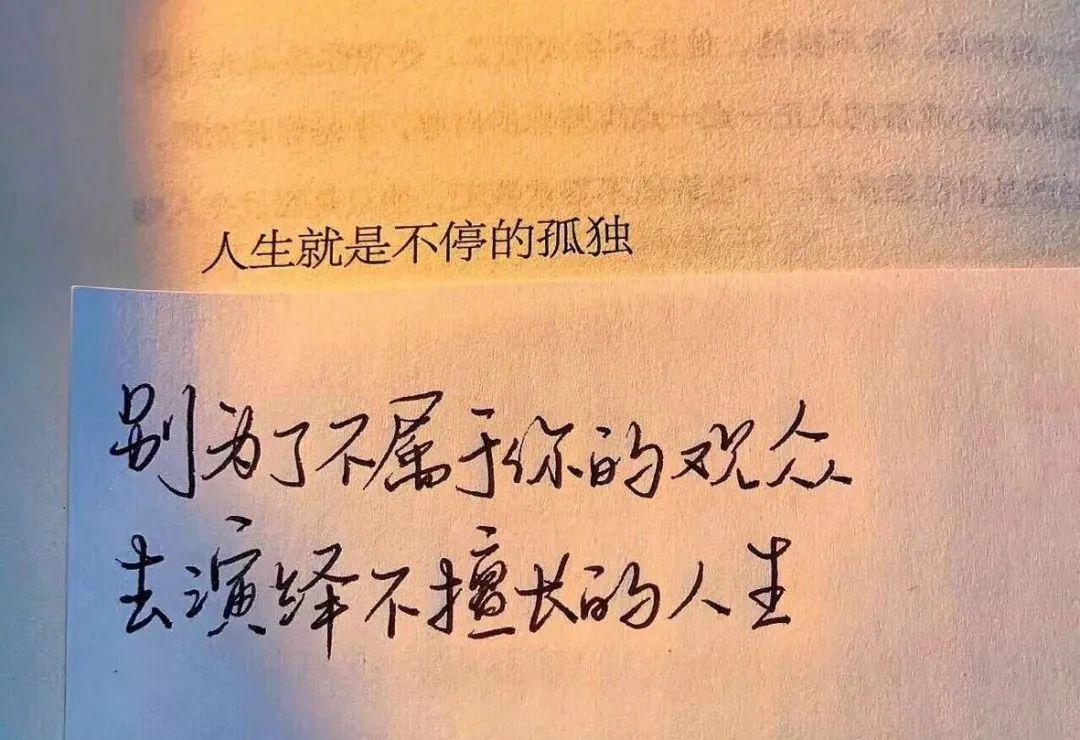 人生就是不停的孤独
别为了不属于你的观众
去演绎不擅长的人生